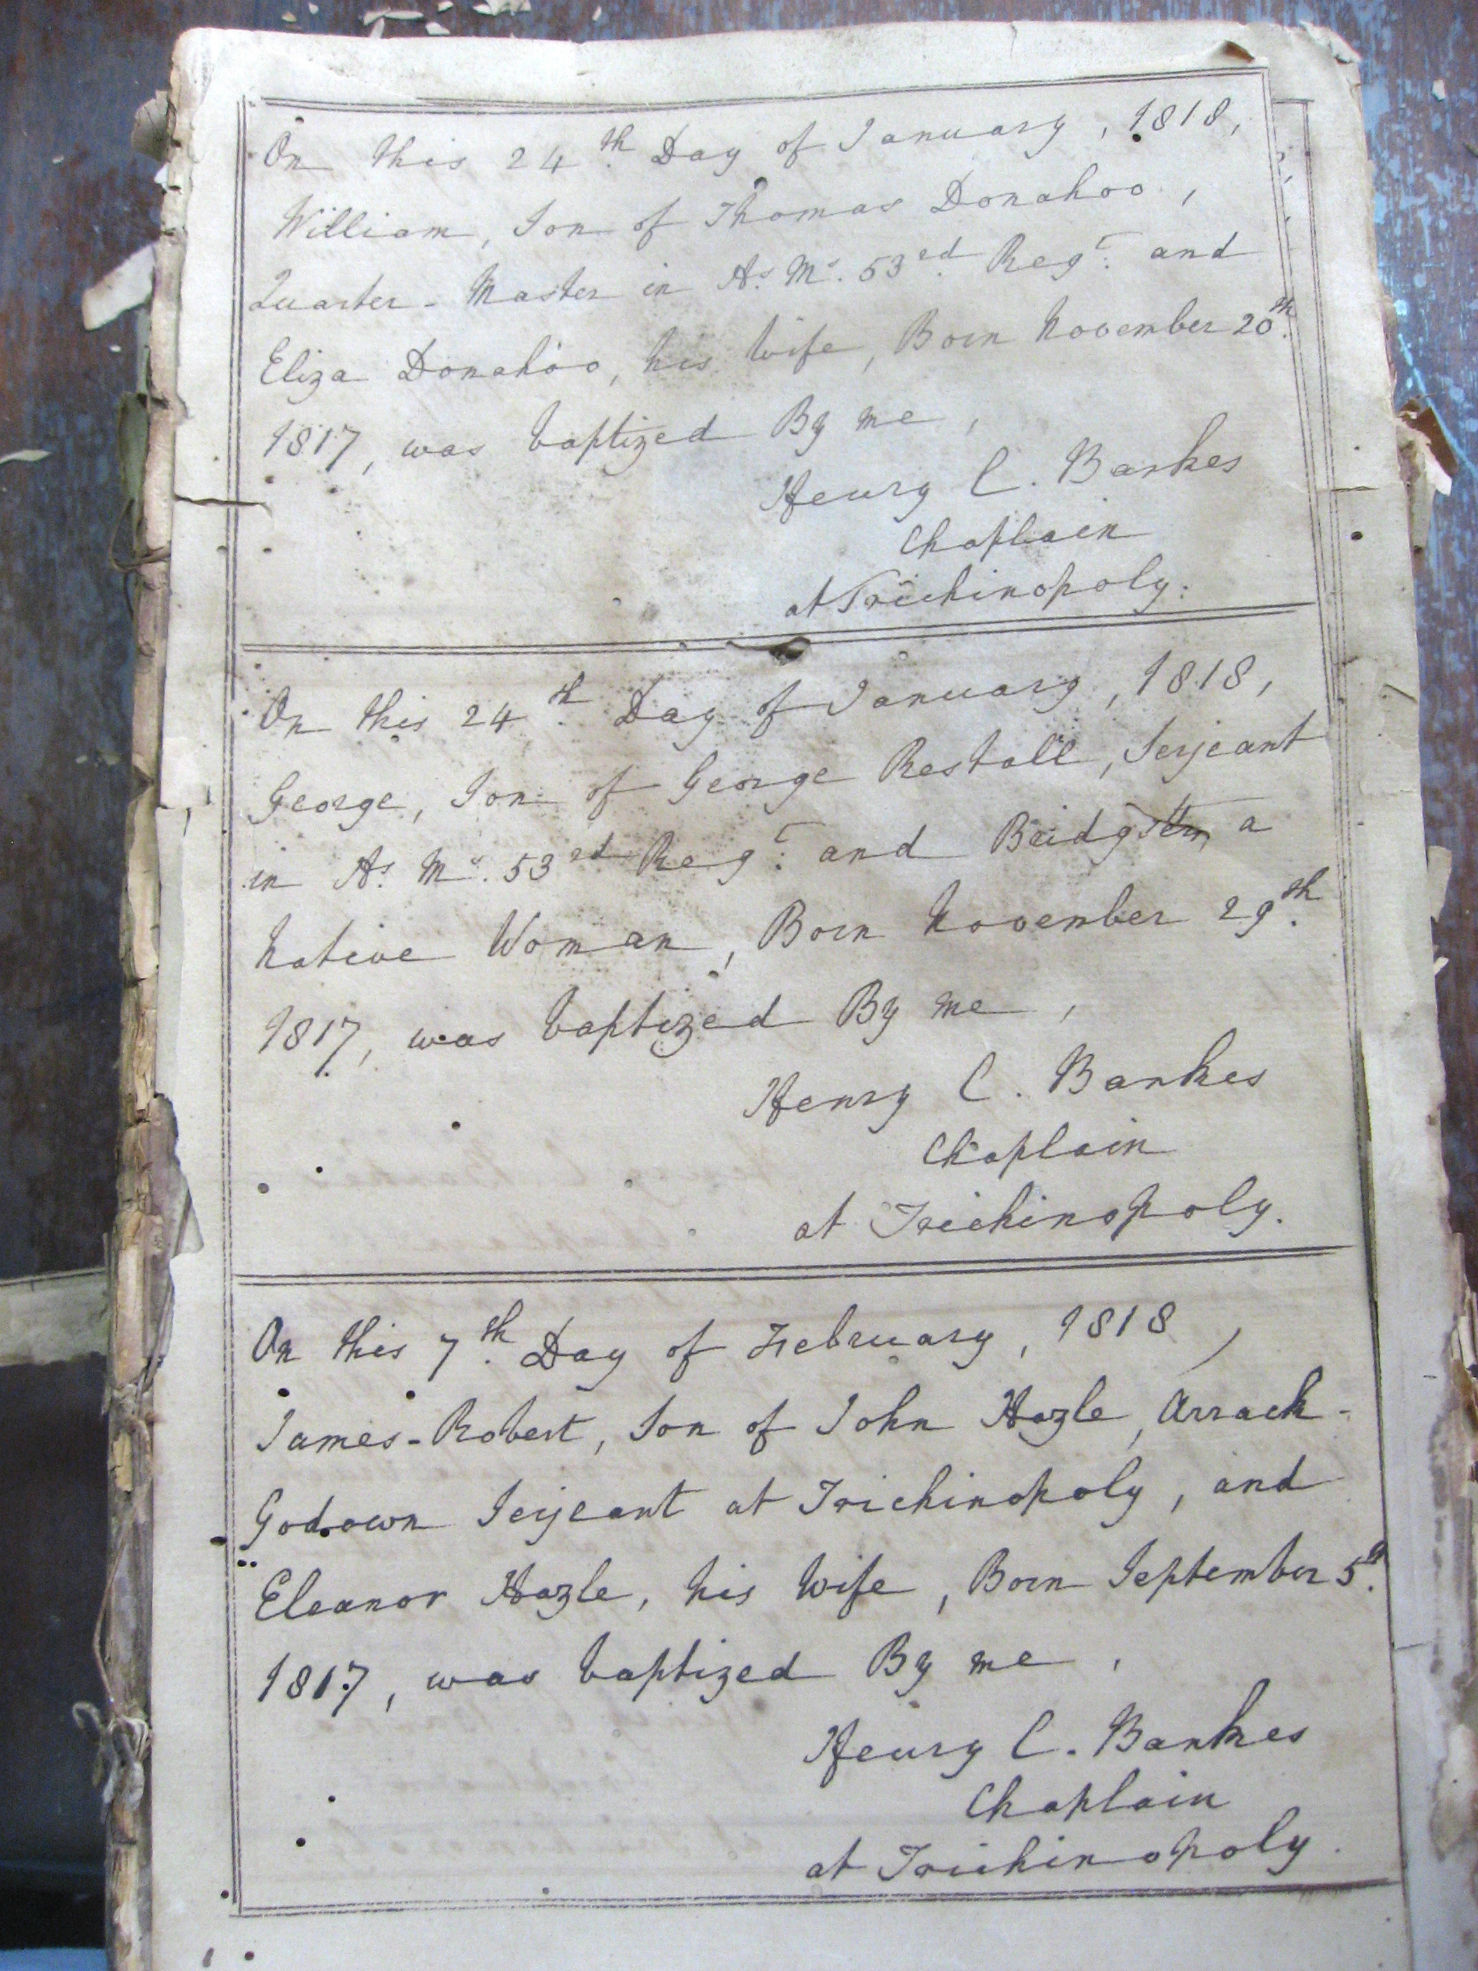 On this 24th. Day of January, 1818,
William, Son of Thomas Donahoo,
Quarter-Master in Hs. Ms. 53rd. Regt. and
Eliza Donahoo, his Wife, Born November 20th.
1817, was baptized By me,
Henry C. Bankes
Chaplain
at Trichinopoly.
On this 24th. Day of January, 1818,
George, Son of George Restall, Serjeant
in Hs. Ms. 53rd Regt. and a
Native Woman, Born November 29th.
1817, was baptized By me,
Henry C. Bankes
Chaplain
at Trichinopoly.
On this 7th. Day of February, 1818,
James-Robert, Son of John Hazle, Arrack-
Godown Serjeant at Trichinopoly, and
Eleanor Hazle, his Wife, Born September 5th.
1817, was baptized By me,
Henry C. Bankes
Chaplain
at Trichinopoly.